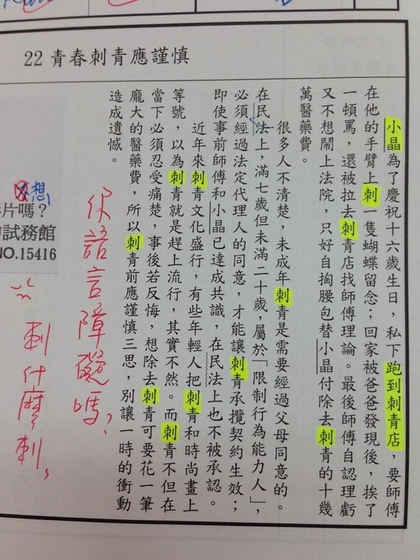 22 青春刺青應謹慎
小晶為了慶祝十六歲生日，私下跑到刺青店 要師傅
在他的手臂上刺一隻蝴蝶留念；回家被爸爸發現後，挨了
一頓罵，還被拉去刺青店找師傅理論。最後師傅自認理虧
又不想鬧上法院，只好自掏腰包替小晶付除去刺青的十幾
萬醫藥費。
很多人不清楚，未成年刺青是需要經過父母同意的。
在民法上，滿七歲但未滿二十歲，屬於「限制行為能力人」，
必須經過法定代理人的同意，才能讓刺青承攬契約生效；
即使事前師傅和小晶已達成共識，在民法上也不被承認。
近年來刺青文化盛行，有些年輕人把刺青和時尚畫上
等號，以為刺青就是趕上流行，其實不然。而刺青不但在
當下必須忍受痛楚，事後若反悔，想除去刺青可要花一筆
龐大的醫藥費，所以刺青前應謹慎三思，別讓一時的衝動
造成遺憾。
你語言障礙嗎？
刺什麼刺。
想
片嗎？
試務館
NO.15416